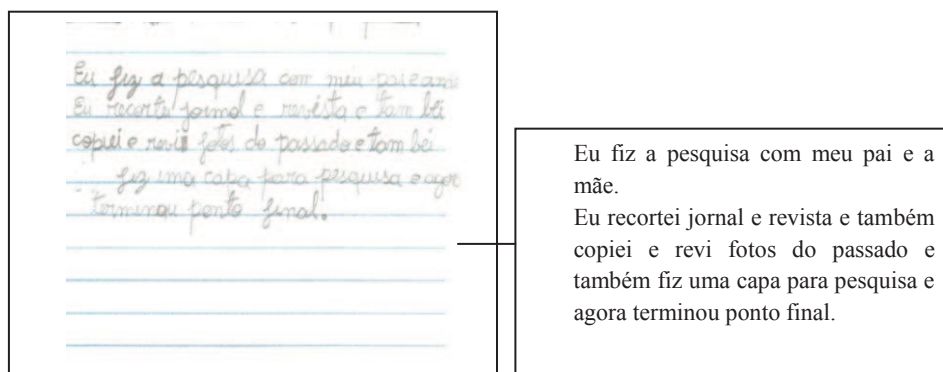 Eu fiz a pesquisa com meu pai e a mã
Eu recorte jornal e revista e tam béi
copiei e revi fotos do passado e tam béi
fiz uma capa para pesquisa e agor
terminou ponto final.
Eu fiz a pesquisa com meu pai e a
mãe.
Eu recortei jornal e revista e também
copiei e revi fotos do passado e
também fiz uma capa para pesquisa e
agora terminou ponto final.